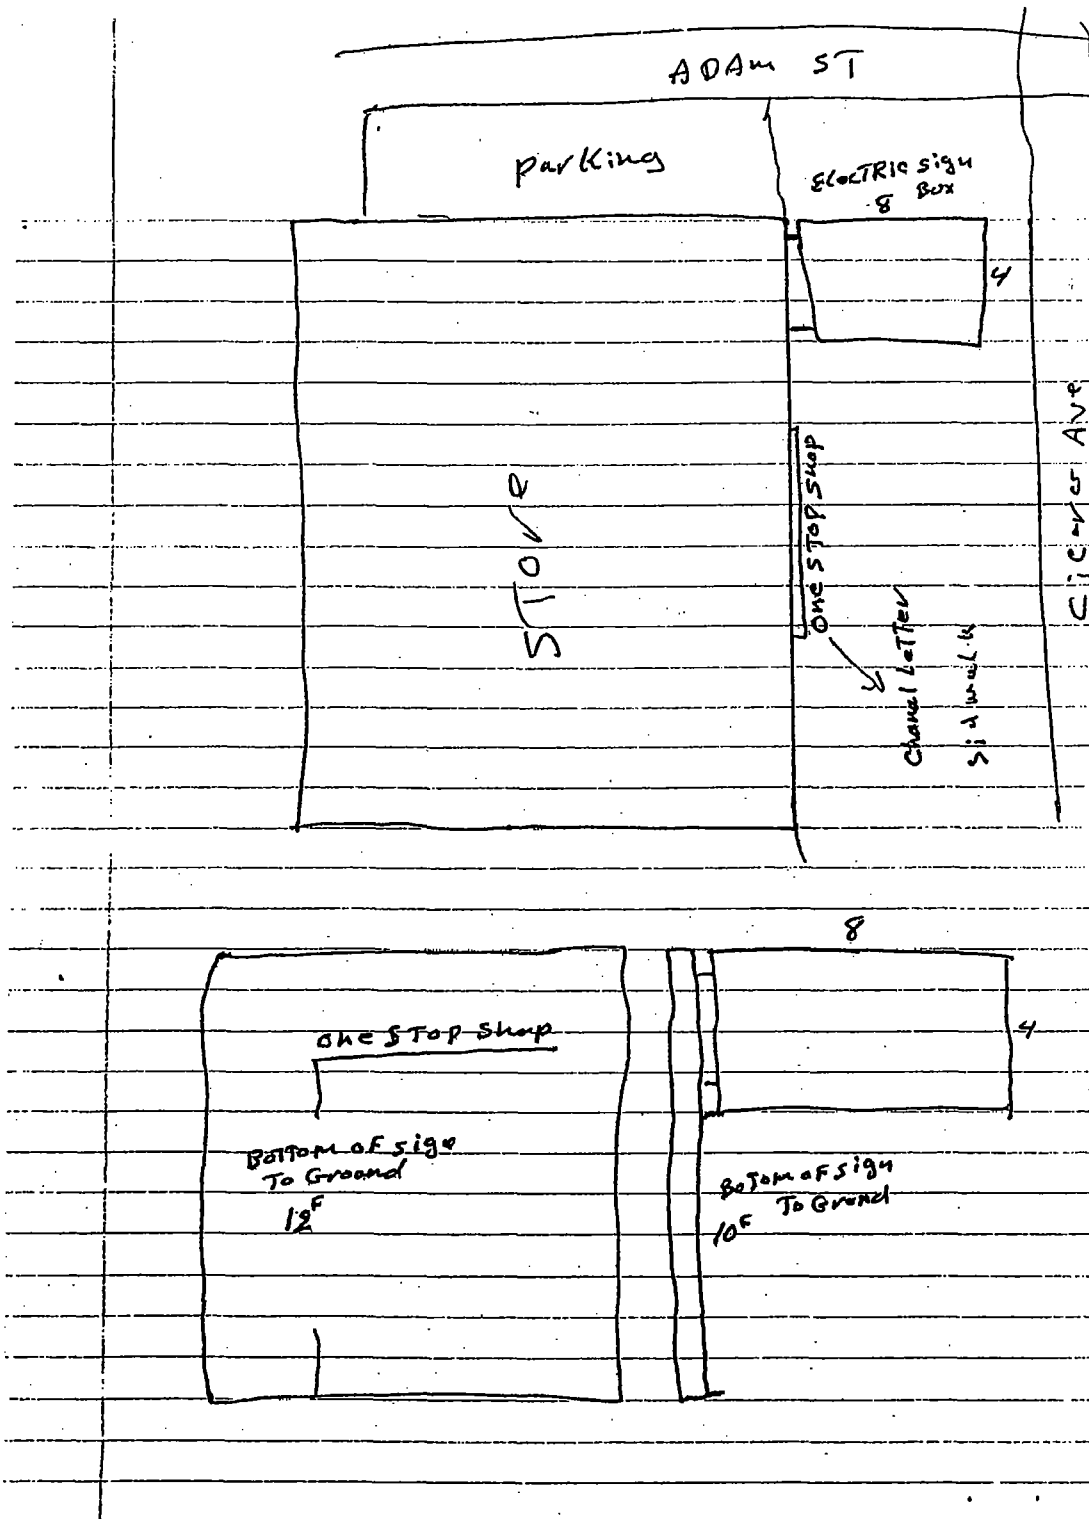 ADAm ST
parKing
ElecTRIC Sign
8 Box
4
STOre
one STOP Shop
Chanal LeTTer
Cicero Ave
8
one STOP Shop
4
BoTTom oF sign
To Ground
12F
BoTom oF sign
To Grond
10F